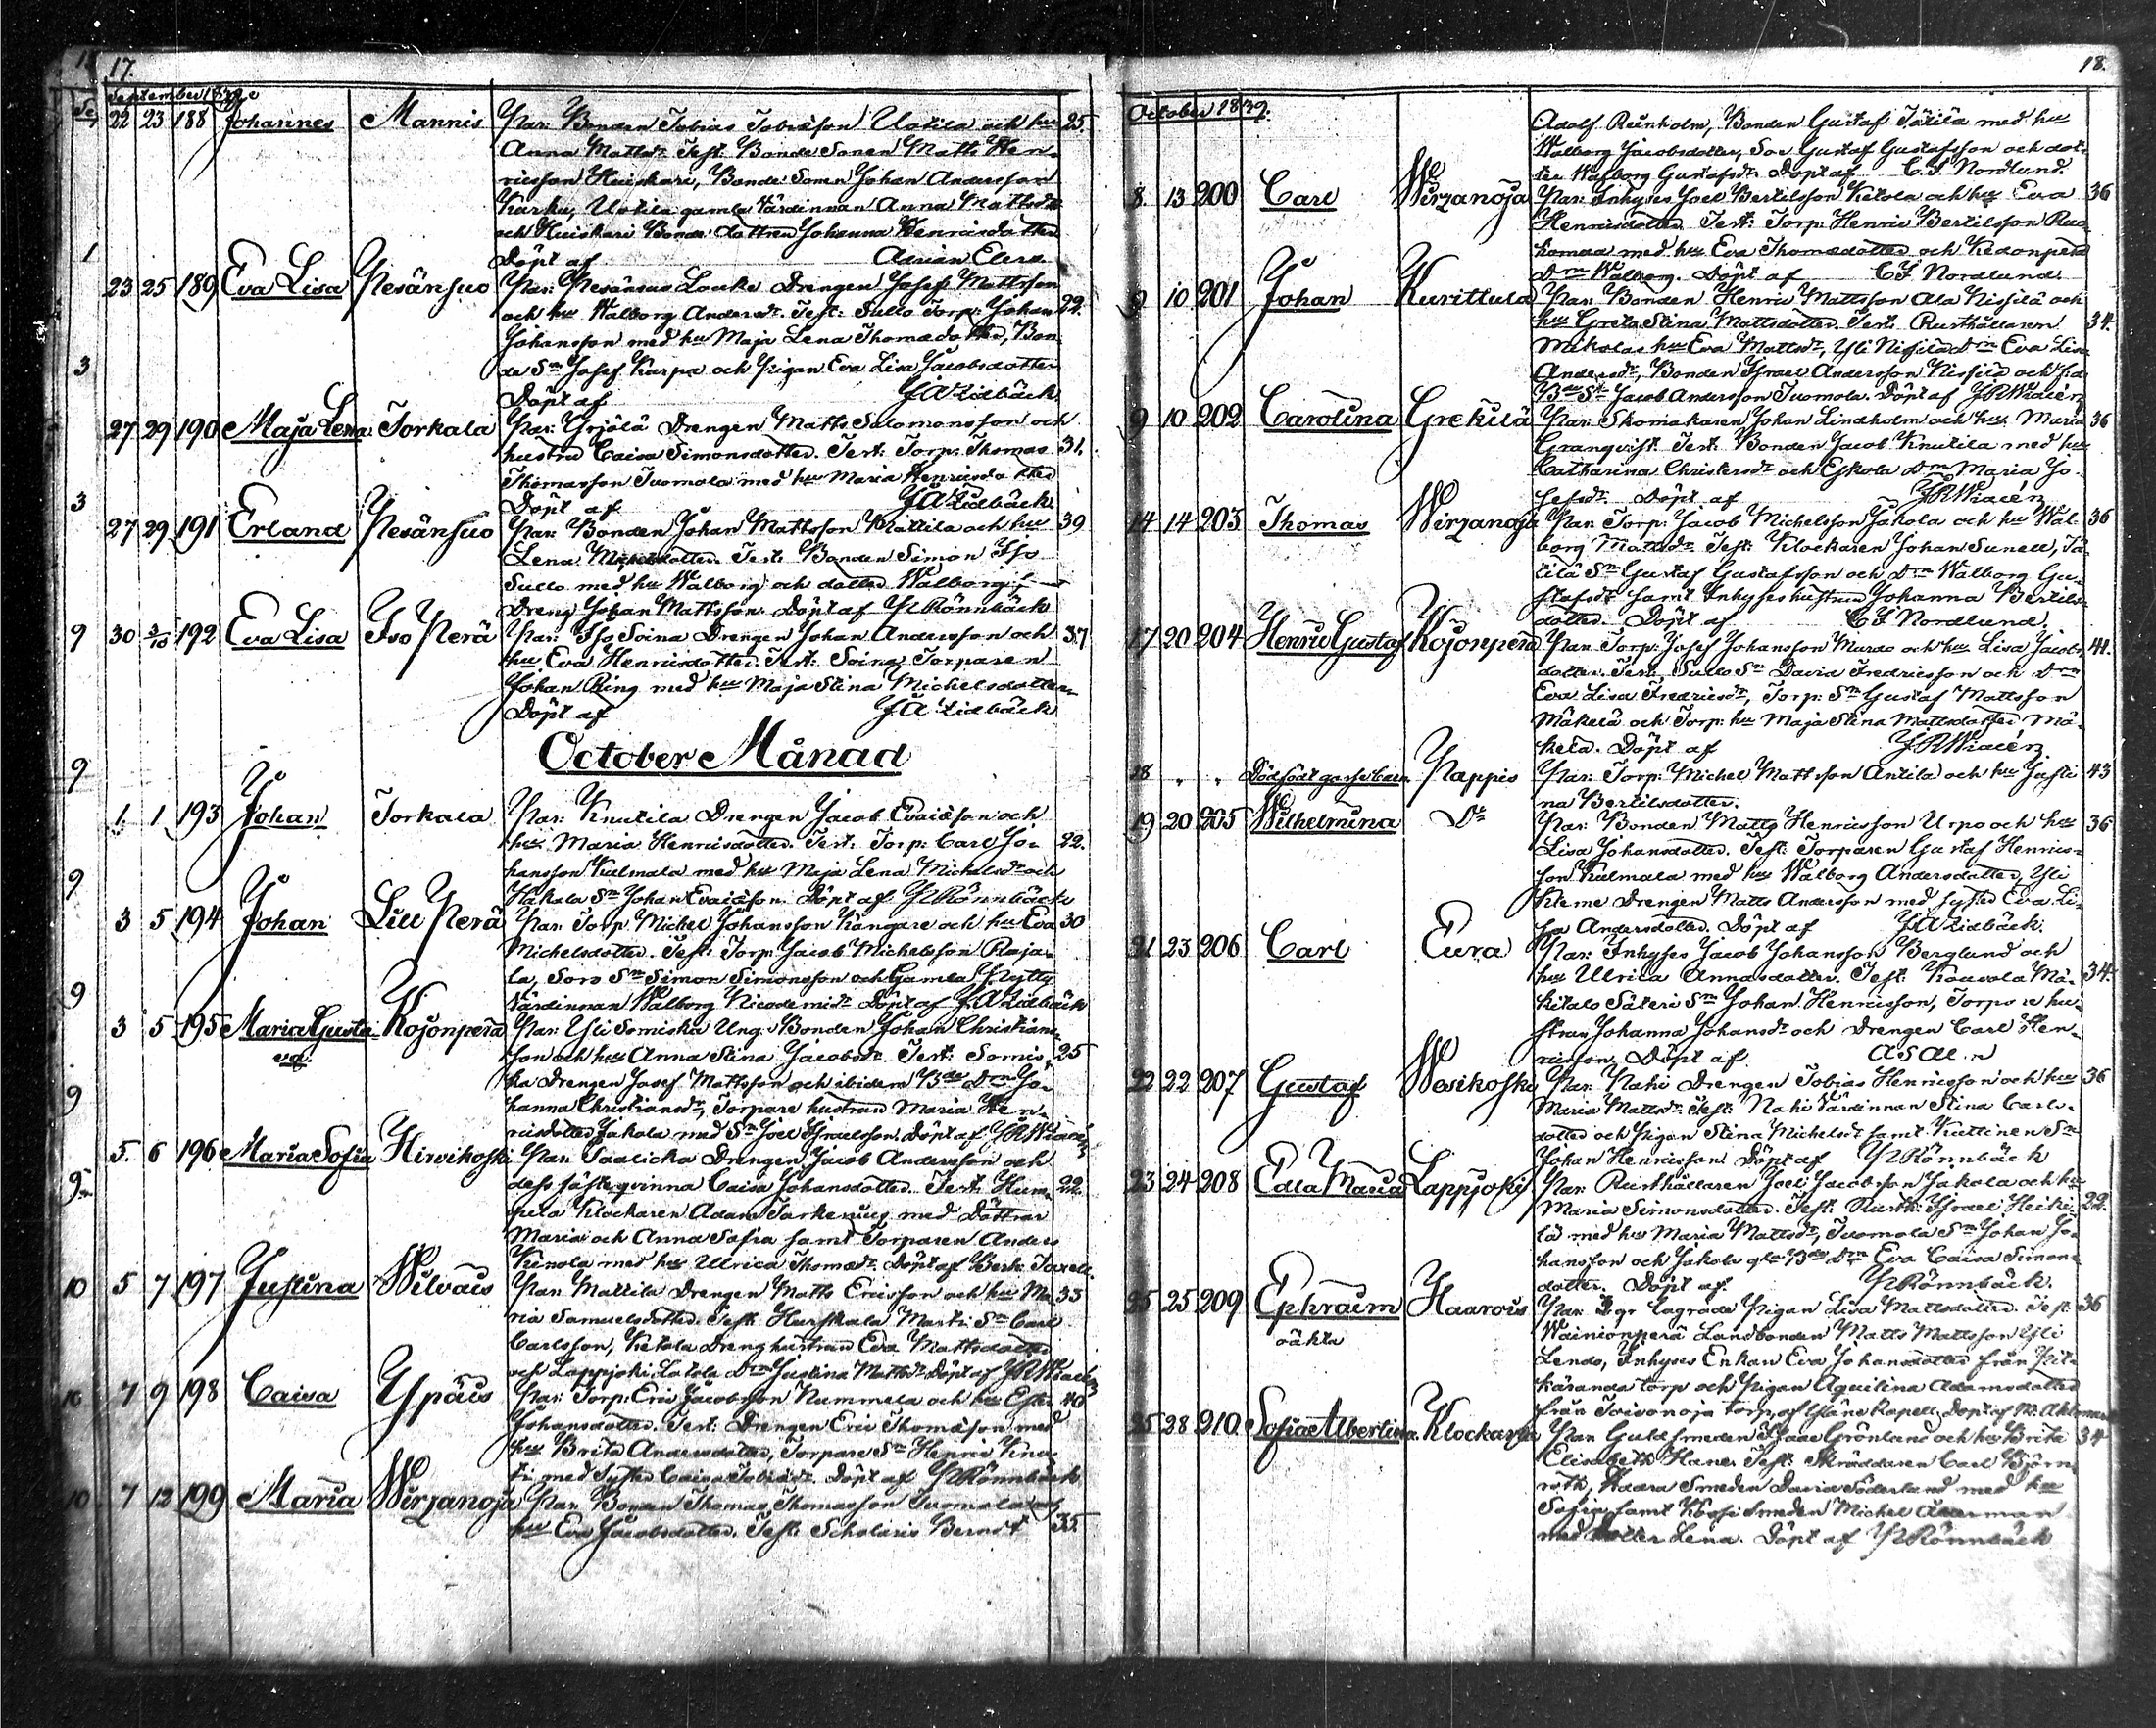 17.
September 1839
22 23 188 Johannes Mannis Par: Bonden Tobias Tobiasson Uotila och hu 25.
Anna Mattsdr Test: Bonde Sonen Matts Hen-
ricsson Huiskari, Bonde Sonen Johan Andersson
Karku, Uotila gamla Värdinnan Anna Mattsdr
och Huiskari Bonde dottren Johanna Henricsdotter
Döpt af Adrian Elers
23 25 189 Eva Lisa Pesänsuo Par: Pesänsuo Louko Drengen Josef Mattsson
och hu Walborg Andersdr. Test: Sullo Torp: Johan 22.
Johansson med hu Maja Lena Thomasdotter, Bon-
de Sn Josef Kurpa och Pigan Eva Lisa Jacobsdotter
Döpt af J A Lidbäck
27 29 190 Maja Lena Torkala Par: Yrjälä Drengen Matts Salomonsson och
hustru Caisa Simonsdotter. Test: Torp: Thomas 31.
Thomasson Tuomola med hu Maria Henricsdotter
Döpt af J A Lidbäck
27 29 191 Erland Pesänsuo Par: Bonden Johan Mattsson Mattila och hu 39
Lena Michelsdotter. Test: Bonden Simon Iso
Sullo med hu Walborg och dotter Walborg
Dreng Johan Mattsson Döpt af Rönnbäck
30 2/10 192 Eva Lisa Iso Perä Par: Iso Soina Drengen Johan Andersson och 37
hu Eva Henricsdotter. Test: Soina Torparen
Johan Ring med hu Maja Stina Michelsdotter
Döpt af J A Lidbäck
October Månad
1 1 193 Johan Torkala Par: Knutila Drengen Jacob Evaisson och
hu Maria Henricsdotter. Test: Torp: Carl Jo- 22.
hansson Kulmala med hu Maja Lena Michelsdr och
Hakala Sn Johan Evaisson Döpt af Rönnbäck
3 5 194 Johan Liu Perä Par: Torp Michel Johansson Kangare och hu Eva 30
Michelsdotter. Test: Torp: Jacob Michelsson Raja-
la, Soro Sn Simon Simonsson och Gamla Pytty
Värdinnan Walborg Nicodemidr Döpt af J A Lidbäck
3 5 195 Maria Gusta- Kojonperä Par: Yli Somiska Ung: Bonden Johan Christians-
va. son och hu Anna Stina Jacobsdr. Test: Somis- 25
ka Drengen Josef Mattsson och ibidem Bde Drn Jo-
hanna Christiansdr, Torpare hustrun Maria Hen-
ricsdotter Jakola med Sn Joel Israelsson Döpt af J R Widen
5. 6 196 Maria Sofia Hirvikoski Par: Drengen Jacob Andersson och
dess fästeqvinna Caisa Johansdotter. Test: Hum- 22.
pela Klockaren Adam Sarkenius med Döttrar
Maria och Anna Sofia samt Torparen Anders
Kinola med hu Ulrica Thomadr. Döpt af
5 7 197 Justina Wilvais Par: Mattila Drengen Matts Ericsson och hu Ma- 33
ria Samuelsdotter. Test: Hurskala Martti Sn Carl
Carlsson, Ketola Dreng hustrun Eva Mattsdotter
och Lappjoki Latola Drn Justina Mattsdr Döpt af J R Widen
7 9 198 Caisa Ypäis Par: Torp: Eric Jacobsson Nummela och hu Ester 40
Johansdotter. Test: Drengen Eric Thomasson med
hu Brita Andersdotter, Torpare Sn Henric Knu-
ti med Syster Caisa Tobiasdr. Döpt af Rönnbäck
7 12 199 Maria Wirzanoja Par: Bonden Thomas Thomasson Tuomola och
hu Eva Jacobsdotter. Test: Scholaris Berndt 35.
18.
October 1839.
Adolf Reinholm, Bonden Gustaf Tätilä med hu
Walborg Jacobsdotter, Son Gustaf Gustafsson och dot-
ter Walborg Gustafsdr Döpt af C. J. Nordlund.
8. 13 200 Carl Wirzanoja Par: Inhyses Joel Bertilsson Ketola och hu Eva 36
Henricsdotter Test: Torp: Henric Bertilsson Ruo-
komaa med hu Eva Thomadotter och Kedonperä
Drn Walborg. Döpt af C J Nordlund
9 10 201 Johan Kurittula Par: Bonden Henric Mattsson Ala Nissilä och
hu Greta Stina Mattsdotter. Test: Rusthållaren 34.
Mikolas hu Eva Mattsdr, Yli Nissilä Drn Eva Lisa
Andersdr, Bonden Israel Andersson Nissilä och
Bde Sn Jacob Andersson Tuomola. Döpt af J R Widen
9 10 202 Carolina Grekilä Par: Skomakaren Johan Lindholm och hu Maria 36
Granqvist. Test: Bonden Jacob Knutila med hu
Catharina Christersdr och Eskola Drn Maria Jo-
sefsdr. Döpt af J R Widen
14 14 203 Thomas Wirzanoja Par: Torp: Jacob Michelsson Jakola och hu Wal- 36
borg Mattsdr Test: Klockaren Johan Sunell, Tä-
tilä Sn Gustaf Gustafsson och Drn Walborg Gu-
stafsdr samt Inhyses hustrun Johanna Bertils-
dotter. Döpt af C J Nordlund.
17 20 204 Henric Gustaf Kojonperä Par: Torp: Josef Johansson Murdo och hu Lisa Jacobs- 41.
dotter. Test: Sullo Sn David Fredricsson och Drn
Eva Lisa Fredricsdr, Torp: Sn Gustaf Mattsson
Mäkelä och Torp: hu Maja Stina Mattsdotter Mä-
kelä. Döpt af J R Widen
18 " " Dödfödt gossebarn. Pappis Par: Torp: Michel Mattsson Antila och hu Justi- 43
na Bertilsdotter.
19 20 205 Wilhelmina Do Par: Bonden Matts Henricsson Urpo och hu 36
Lisa Johansdotter. Test: Torparen Gustaf Henrics-
son Kulmala med hu Walborg Andersdotter, Yli
Kleme Drengen Matts Andersson med syster Eva Li-
sa Andersdotter. Döpt af J A Lidbäck.
21 23 206 Carl Eura Par: Inhyses Jacob Johansson Berglund och
hu Ulrica Annasdotter. Test: Kauvola Mä- 34.
kitalo Säteri Sn Johan Henricsson, Torpare hu-
strun Johanna Johansdr och Drengen Carl Hen-
ricsson. Döpt af
22 22 207 Gustaf Wesikoski Par: Nahi Drengen Tobias Henricsson och hu 36
Maria Mattsdr Test: Nahi Värdinnan Stina Carls-
dotter och Pigan Stina Michelsdr samt Kuttinen Sn
Johan Henricsson Döpt af Rönnbäck
23 24 208 Edla Maria Lappjoki Par: Rusthållaren Joel Jacobsson Jakola och hu
Maria Simonsdotter. Test: Rusth: Israel Heiki- 22.
lä med hu Maria Mattsdr, Tuomola Sn Johan Jo-
hansson och Jakola Bde Drn Eva Caisa Simons-
dotter. Döpt af Rönnbäck.
25 25 209 Ephraim Haarois Par: Lägrade Pigan Lisa Mattsdotter. Test: 36
oäkta Wäinionperä Landbonden Matts Mattsson Yli
Lendo, Inhyses Enkan Eva Johansdotter från
torp och Pigan Aquilina Adamsdotter
från Toivonoja torp, af Yläne Kapell. Döpt af
25 28 210. Sofia Albertina. Klockar Par: Guldsmeden Isaac Grönlund och hu Brita 34
Elisabeth Hane. Test: Skräddaren Carl Björn-
roth, Smeden David Söderlund med hu
Sofia samt Smeden Michel Åkerman
med dotter Lena. Döpt af Rönnbäck